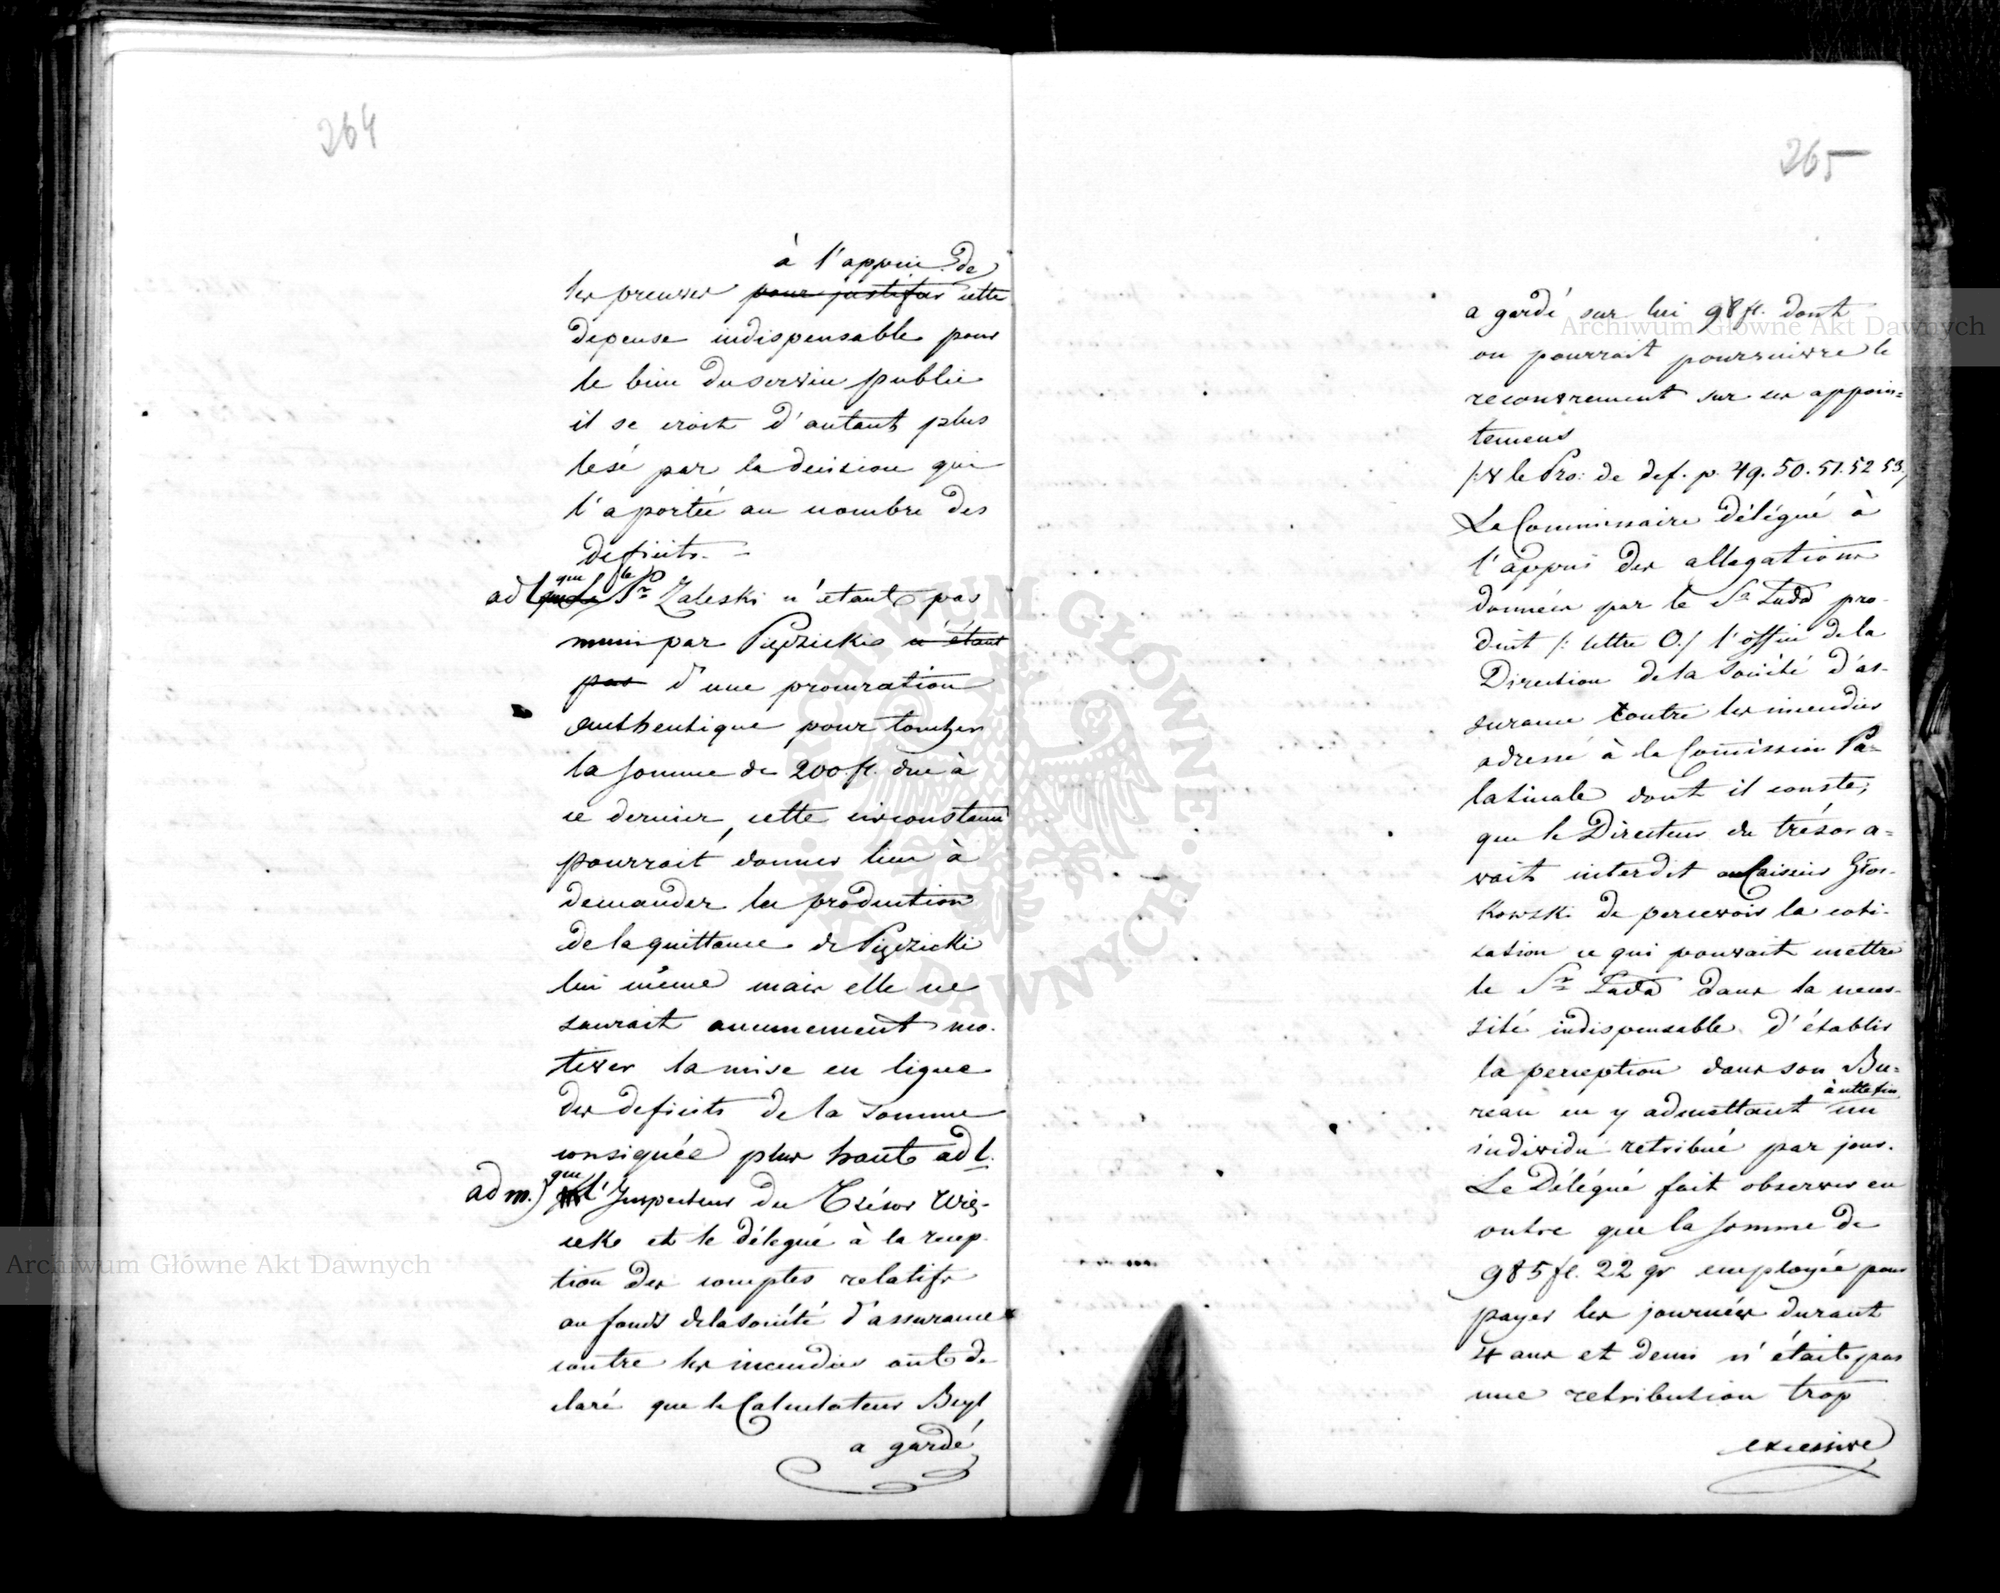 264
à l'appui de
les preuves pour justifier cette
depense indispensable pour
le bien du service public
il se croit d'autant plus
lesé par la decision qui
l'a portée au nombre des
deficits. =
ad l que le Sr Zaleski n'étant pas
muni par Pigdzicki n'étant
pas d'une procuration
authentique pour toucher
la somme de 200. fl. due à
ce dernier, cette circonstance
pourrait donner lieu à
demander la production
de la quittance de Pigdzicki
lui même mais elle ne
saurait aucunement mo-
tiver la mise en ligne
des deficits de la somme
consignée plus haut ad l.
ad m.) que l'Inspecteur du Trésor Wię-
cek et le délegué à la recep-
tion des comptes relatifs
au fonds de la société d'assurance
contre les incendies ont de
claré que le Calculateur Beyl
a gardé
265
a gardé sur lui 98 fl. dont
on pourrait poursuivre le
recouvrement sur ses appoin=
temens
/: v le Pro: de def. p. 49. 50. 51. 52 53./
Le Commissaire délégué à
l'appui des allegations
données par le Sr Łada pro-
duit /: lettre O./ l'office de la
Direction de la Société d'as-
surance contre les incendies
adressé à la Commission Pa=
latinale dont il conste,
que le Directeur du trésor a=
vait interdit au Caissier Głos-
kowski de percevoir la coti-
sation ce qui pouvait mettre
le Sr Łada dans la neces-
sité indispensable d'établir
la perception dans son Bu=
à cette fin
reau en y admettant un
individu retribué par jour.
Le Délégué fait observer en
outre que la somme de
985 fl. 22 gr employée pour
payer les journées durant
4 ans et demi n'était pas
une retribution trop
excessive
Archiwum Główne Akt Dawnych
Archiwum Główne Akt Dawnych
ARCHIWUM GŁÓWNE AKT DAWNYCH